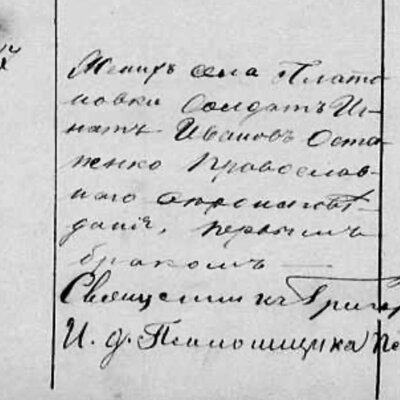 Женихъ села Плато
новки Солдатъ Иг
натъ Ивановъ Оста
пенко Православ
наго вѣроисповѣ
данія, первымъ
бракомъ
Священникъ Григор
И. д. Псаломщика